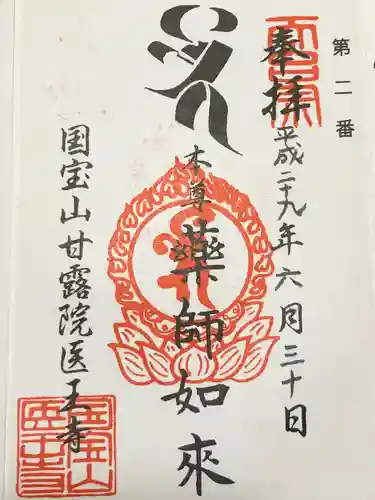 第二番
奉拝
平成二十九年六月三十日
本尊
藥師如來
国宝山甘露院医王寺